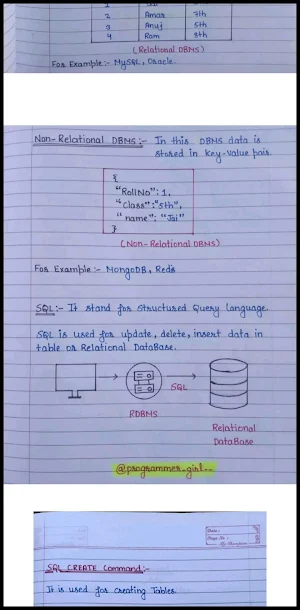 2 Amar 7th
3 Anuj 5th
4 Ram 8th
(Relational DBMS)
For Example:- MySQL, Oracle.
Non-Relational DBMS:- In this DBMS data is
stored in key-value pair.
{
"RollNo": 1,
"Class":"5th",
"name": "Jai"
}
(Non-Relational DBMS)
For Example:- MongoDB, Redis
SQL:- It stand for Structured Query Language.
SQL is used for update, delete, insert data in
table or Relational DataBase.
SQL
RDBMS
Relational
DataBase
@programmer_girl__
Date:
Page No.:
SQL CREATE Command:-
It is used for creating Tables.